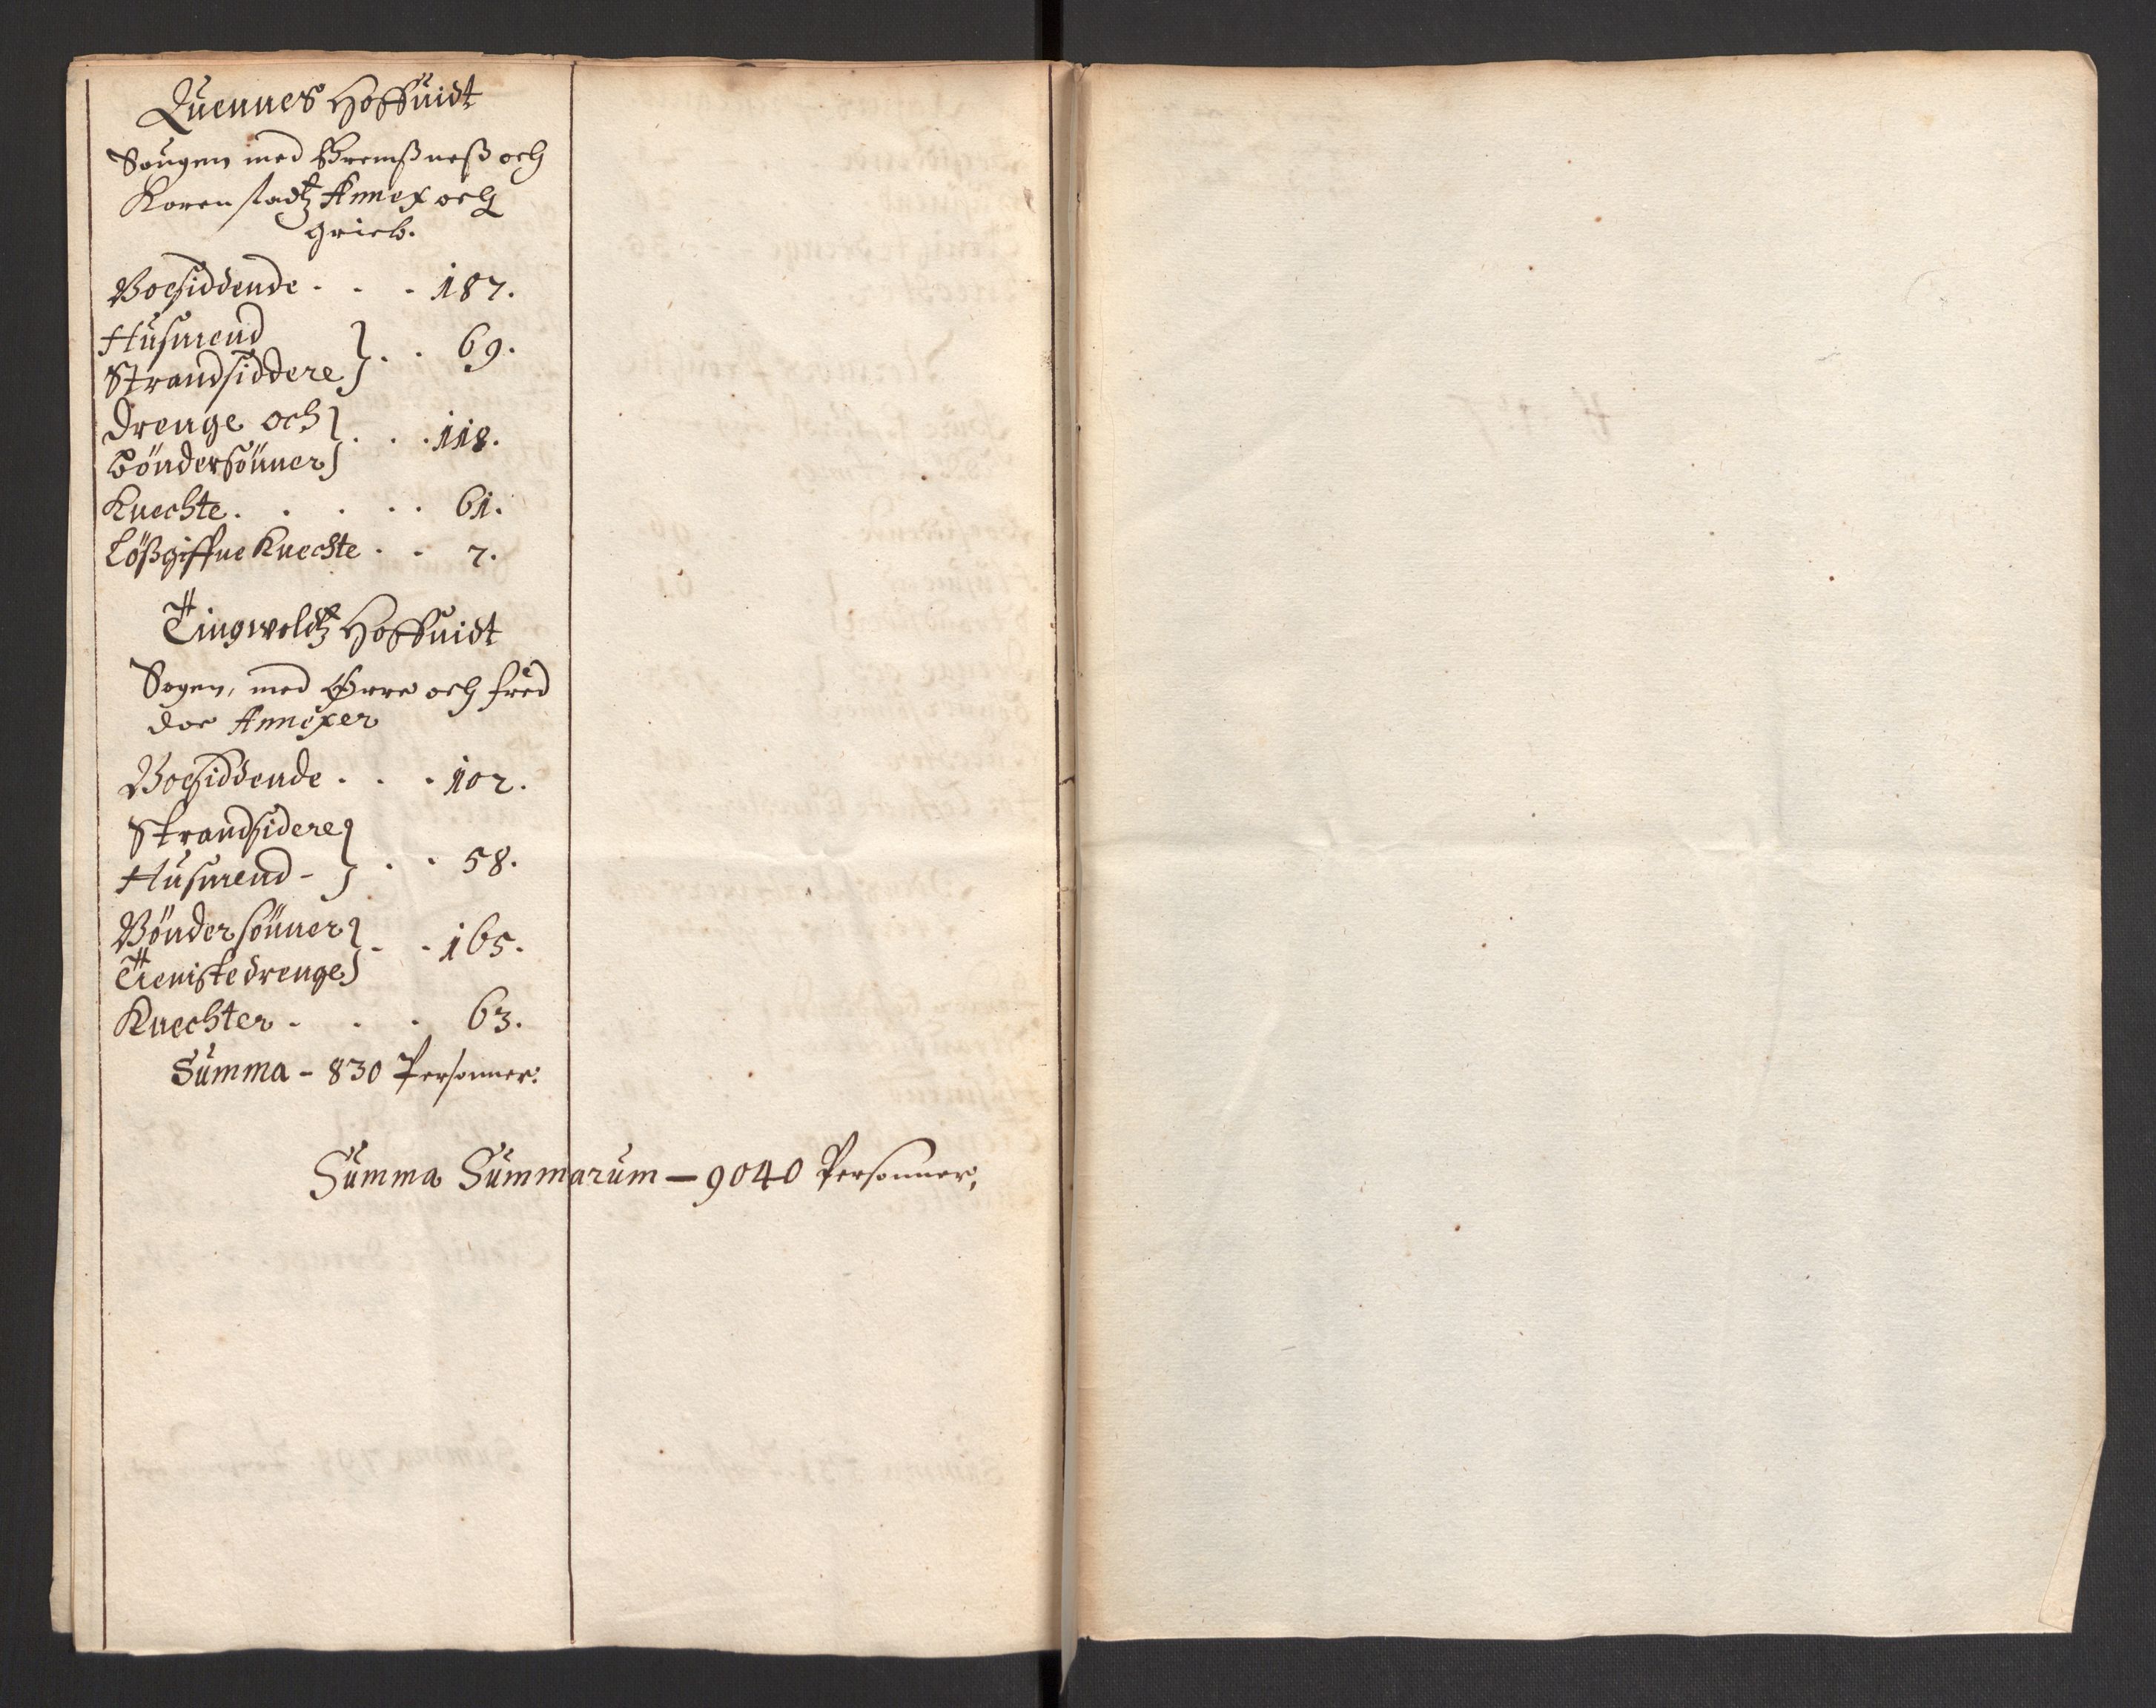 Quennes Hoffuidt
Sougen med Bremßneß och
Korenstadtz Annex och
Grieb.
Boesiddende . . . 187.
Husmend
Strandsiddere } . . 69.
Drenge och
Böndersönner } . . . 118.
Knechte . . . . . 61.
Lößgiffne Knechte . . 7.
Tingwoldtz Hoffuidt
Sogen, med Ørre och fred
der Annexer
Boesiddende . . . 102.
Strandsidere
Husmend - } . . 58.
Bönder sönner
Tienistedrenge } . . 165.
Knechter . . . 63.
Summa - 830 Personner:
Summa Summarum — 9040 Personner,